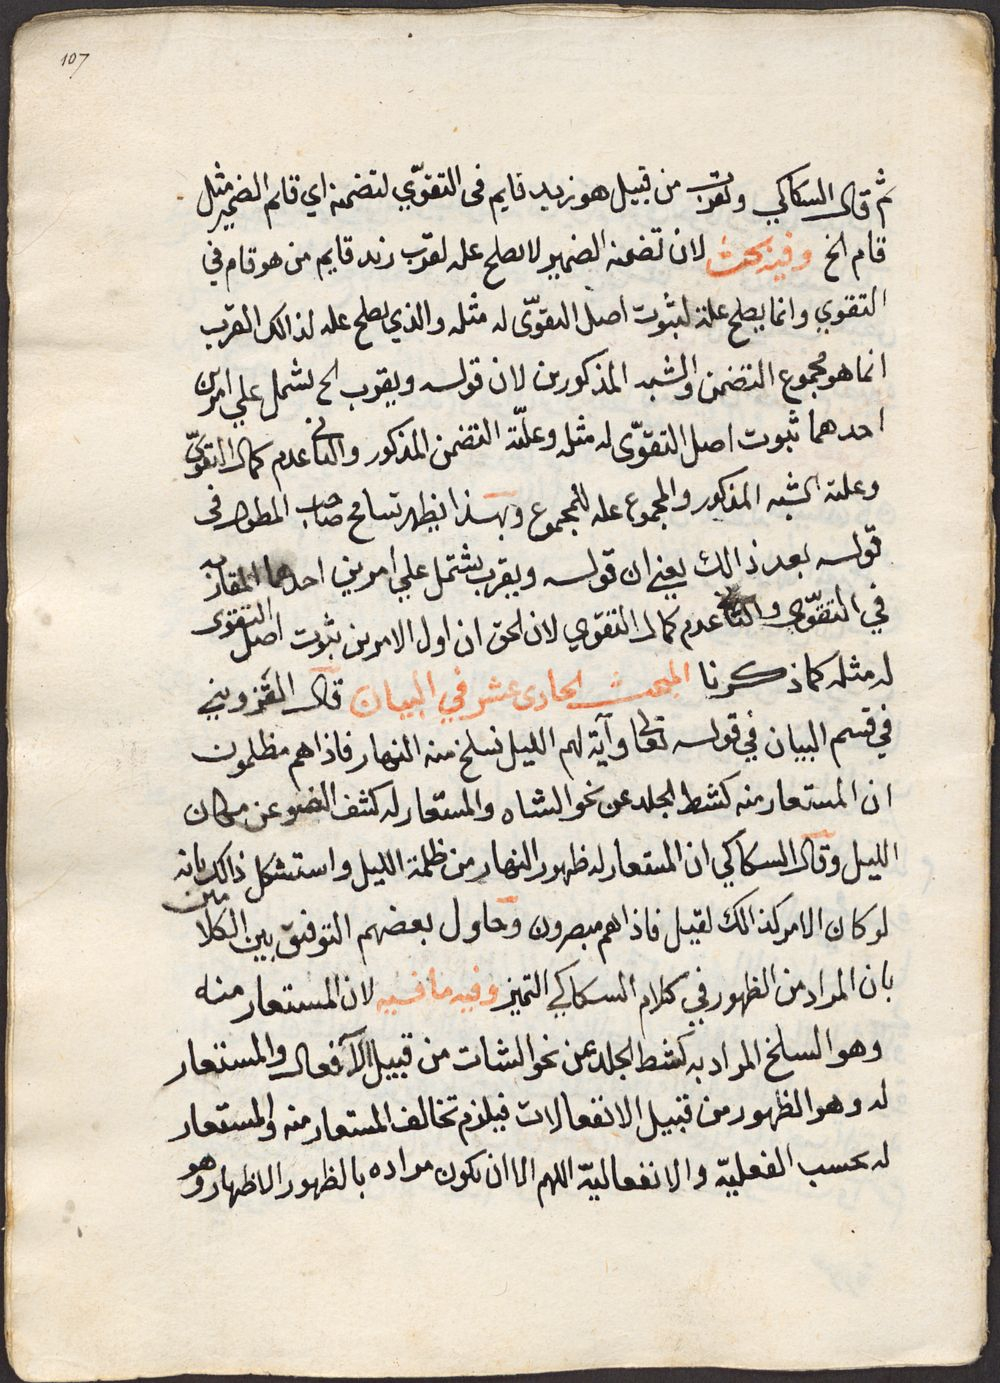 107
ثم قال السكاكي ويقرب من قبيل هو زيد قايم فى التقوّي لتضمنه اي قايم الضمير مثل
قام الخ وفيه بحث لان تضمنه الضمير لا يصلح عله لقرب زيد قايم من هو قام في
التقوي وانما يصلح علة لثبوت اصل التقوّى له مثله والذي يصلح عله لذالك القرب
انما هو مجموع التضمن والشبه المذكورين لان قوله ويقرب الخ يشمل علي امرين
احدهما ثبوت اصل التقوّى له مثله وعلّته التضمن المذكور والثانى عدم كمال التقوّى
وعلته الشبه المذكور والمجموع عله للمجموع وبهذا يظهر تسامح صاحب المطول فى
قوله بعد ذالك يعني ان قوله ويقرب يشتمل علي امرين احدهما المقاربه
في التقوّى والثانى عدم كمال التقوي لان الحق ان اول الامرين ثبوت اصل التقوى
له مثله كما ذكرنا المبحث الحادى عشر في البيان قال القزويني
في قسم البيان في قوله تعالى وآية لهم الليل نسلخ منه النهار فاذا هم مظلمون
ان المستعار منه كشط الجلد عن نحو الشاه والمستعار له كشف الضو عن مكان
الليل وقال السكاكي ان المستعار له ظهور النهار من ظلمة الليل واستشكل ذالك بانه
لو كان الامر كذالك لقيل فاذا هم مبصرون وحاول بعضهم التوفيق بين الكلامين
بان المراد من الظهور في كلام السكاكي التميز وفيه ما فيه لان المستعار منه
وهو السلخ المراد به كشط الجلد عن نحو الشات من قبيل الآفعال والمستعار
له وهو الظهور من قبيل الانفعالات فيلزم تخالف المستعار منه والمستعار
له بحسب الفعليّة والانفعاليّة اللهم الا ان يكون مراده بالظهور الاظهار وهو